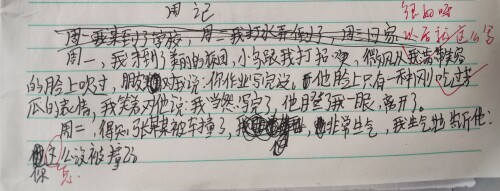 周记
很好呀
周一我来到了学校,周二我打水弄倒了,周三回家
以后按这个写
周一,我来到了美丽的校园,小鸟跟我打招呼,微风从我带笑容
的脸上吹过,朋友对我说:你作业写完没,而他脸上只有一种刚吃过苦
瓜的表情,我笑着对他说:我当然写完了,他瞪了我一眼,离开了。
周二,得知张某某被车撞了,非常生气,我生气地告诉他:
你这么没被撞死
怎